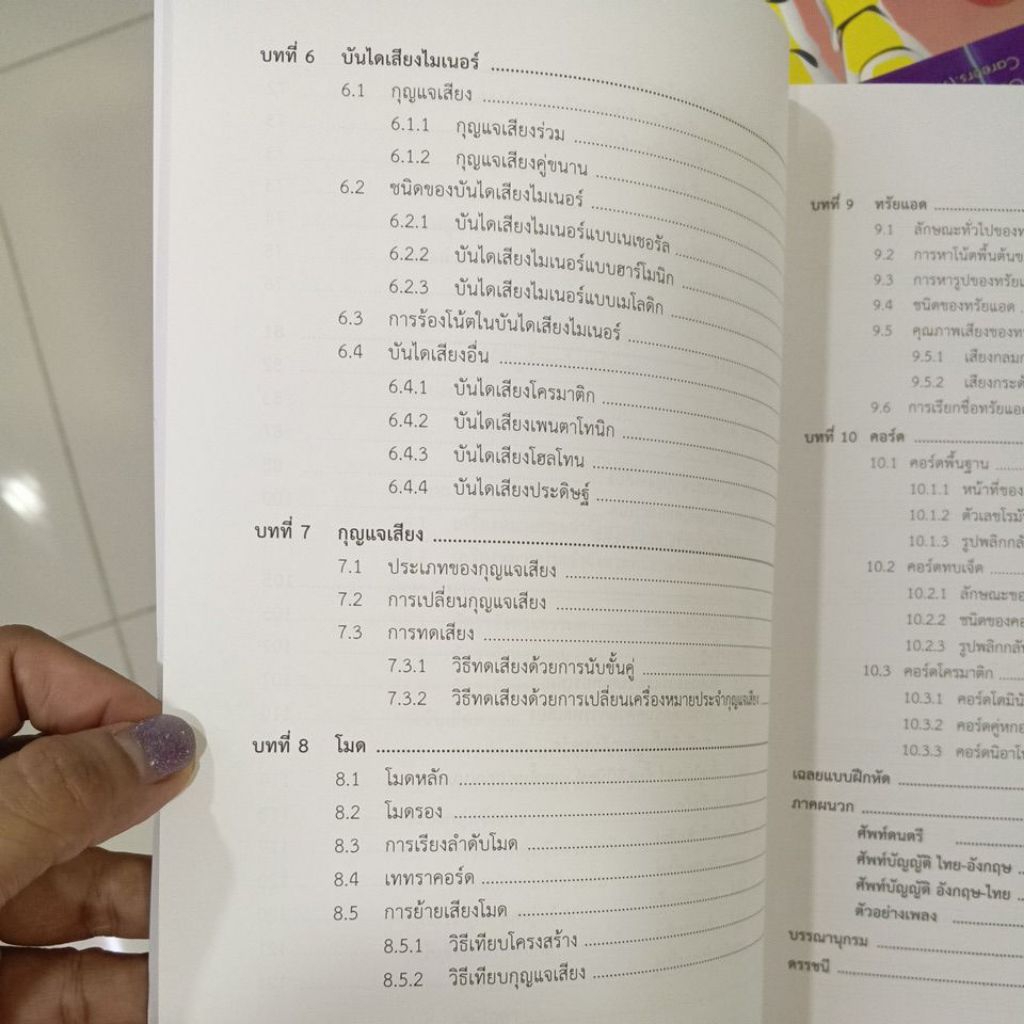 บทที่ 6 บันไดเสียงไมเนอร์
6.1 กุญแจเสียง
6.1.1 กุญแจเสียงร่วม
6.1.2 กุญแจเสียงคู่ขนาน
6.2 ชนิดของบันไดเสียงไมเนอร์
6.2.1 บันไดเสียงไมเนอร์แบบเนเชอรัล
6.2.2 บันไดเสียงไมเนอร์แบบฮาร์โมนิก
6.2.3 บันไดเสียงไมเนอร์แบบเมโลดิก
6.3 การร้องโน้ตในบันไดเสียงไมเนอร์
6.4 บันไดเสียงอื่น
6.4.1 บันไดเสียงโครมาติก
6.4.2 บันไดเสียงเพนตาโทนิก
6.4.3 บันไดเสียงโฮลโทน
6.4.4 บันไดเสียงประดิษฐ์
บทที่ 7 กุญแจเสียง
7.1 ประเภทของกุญแจเสียง
7.2 การเปลี่ยนกุญแจเสียง
7.3 การทดเสียง
7.3.1 วิธีทดเสียงด้วยการนับขั้นคู่
7.3.2 วิธีทดเสียงด้วยการเปลี่ยนเครื่องหมายประจำกุญแจเสียง
บทที่ 8 โมด
8.1 โมดหลัก
8.2 โมดรอง
8.3 การเรียงลำดับโมด
8.4 เททราคอร์ด
8.5 การย้ายเสียงโมด
8.5.1 วิธีเทียบโครงสร้าง
8.5.2 วิธีเทียบกุญแจเสียง
บทที่ 9 ทรัยแอด
9.1 ลักษณะทั่วไปของ
9.2 การหาโน้ตพื้นต้น
9.3 การหารูปของทรัย
9.4 ชนิดของทรัยแอด
9.5 คุณภาพเสียงของ
9.5.1 เสียงกลม
9.5.2 เสียงกระ
9.6 การเรียกชื่อทรัยแอ
บทที่ 10 คอร์ด
10.1 คอร์ดพื้นฐาน
10.1.1 หน้าที่ของ
10.1.2 ตัวเลขโร
10.1.3 รูปพลิกกลั
10.2 คอร์ดทบเจ็ด
10.2.1 ลักษณะขอ
10.2.2 ชนิดของคอ
10.2.3 รูปพลิกกลั
10.3 คอร์ดโครมาติก
10.3.1 คอร์ดโดมิ
10.3.2 คอร์ดคู่หก
10.3.3 คอร์ดนีอาโ
เฉลยแบบฝึกหัด
ภาคผนวก
ศัพท์ดนตรี
ศัพท์บัญญัติ ไทย-อังกฤษ
ศัพท์บัญญัติ อังกฤษ-ไทย
ตัวอย่างเพลง
บรรณานุกรม
ดรรชนี